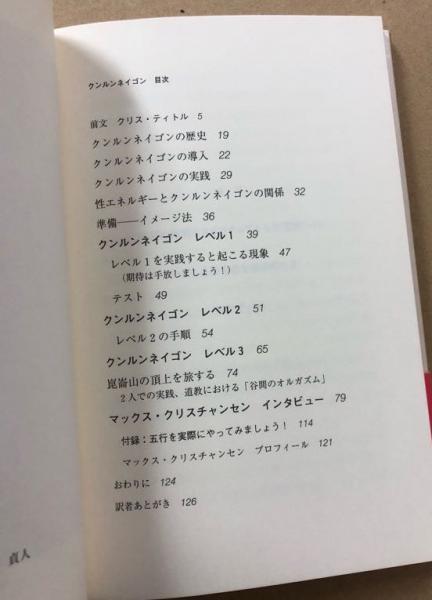 クンルンネイゴン 目次
前文 クリス・ティトル 5
クンルンネイゴンの歴史 19
クンルンネイゴンの導入 22
クンルンネイゴンの実践 29
性エネルギーとクンルンネイゴンの関係 32
準備――イメージ法 36
クンルンネイゴン レベル1 39
レベル1を実践すると起こる現象 47
(期待は手放しましょう!)
テスト 49
クンルンネイゴン レベル2 51
レベル2の手順 54
クンルンネイゴン レベル3 65
崑崙山の頂上を旅する 74
2人での実践、道教における「谷間のオルガズム」
マックス・クリスチャンセン インタビュー 79
付録:五行を実際にやってみましょう! 114
マックス・クリスチャンセン プロフィール 121
おわりに 124
訳者あとがき 126
貞人